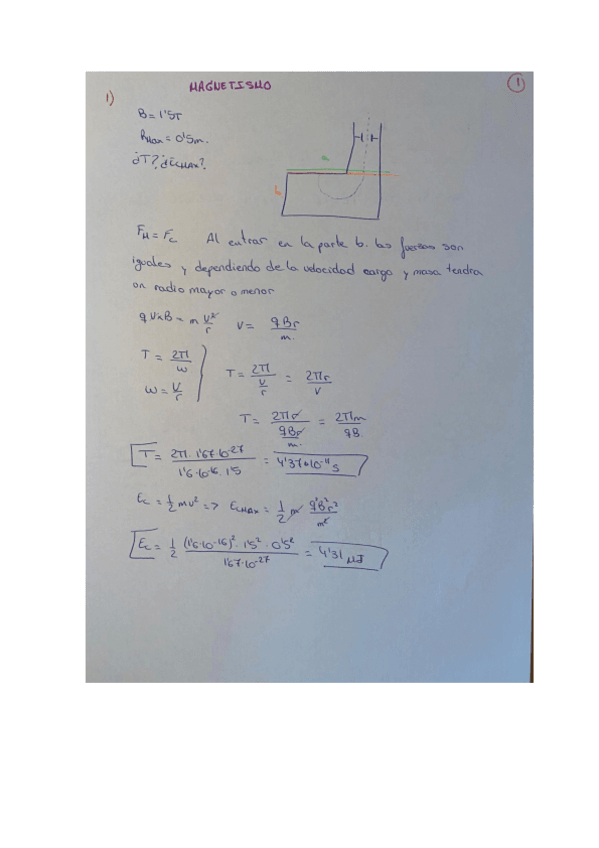 MAGNETISMO
1
1)
B = 1'5T
R_Max = 0'5m.
¿T? ¿E_CMAX?
a
b
F_M = F_C Al entrar en la parte b. las fuerzas son
iguales y dependiendo de la velocidad carga y masa tendra
un radio mayor o menor
q V×B = m V²/r V = qBr/m.
T = 2π/ω
ω = V/r
T = 2π/(V/r) = 2πr/V
T = 2πr/(qBr/m.) = 2πm/qB.
T = 2π·1'67·10^-27/1'6·10^-16·1'5 = 4'37*10^-11 s
E_C = 1/2 mv² => E_CMAX = 1/2 m q²B²r²/m²
E_C = 1/2 (1'6·10^-16)²·1'5²·0'5²/1'67·10^-27 = 4'31 µJ